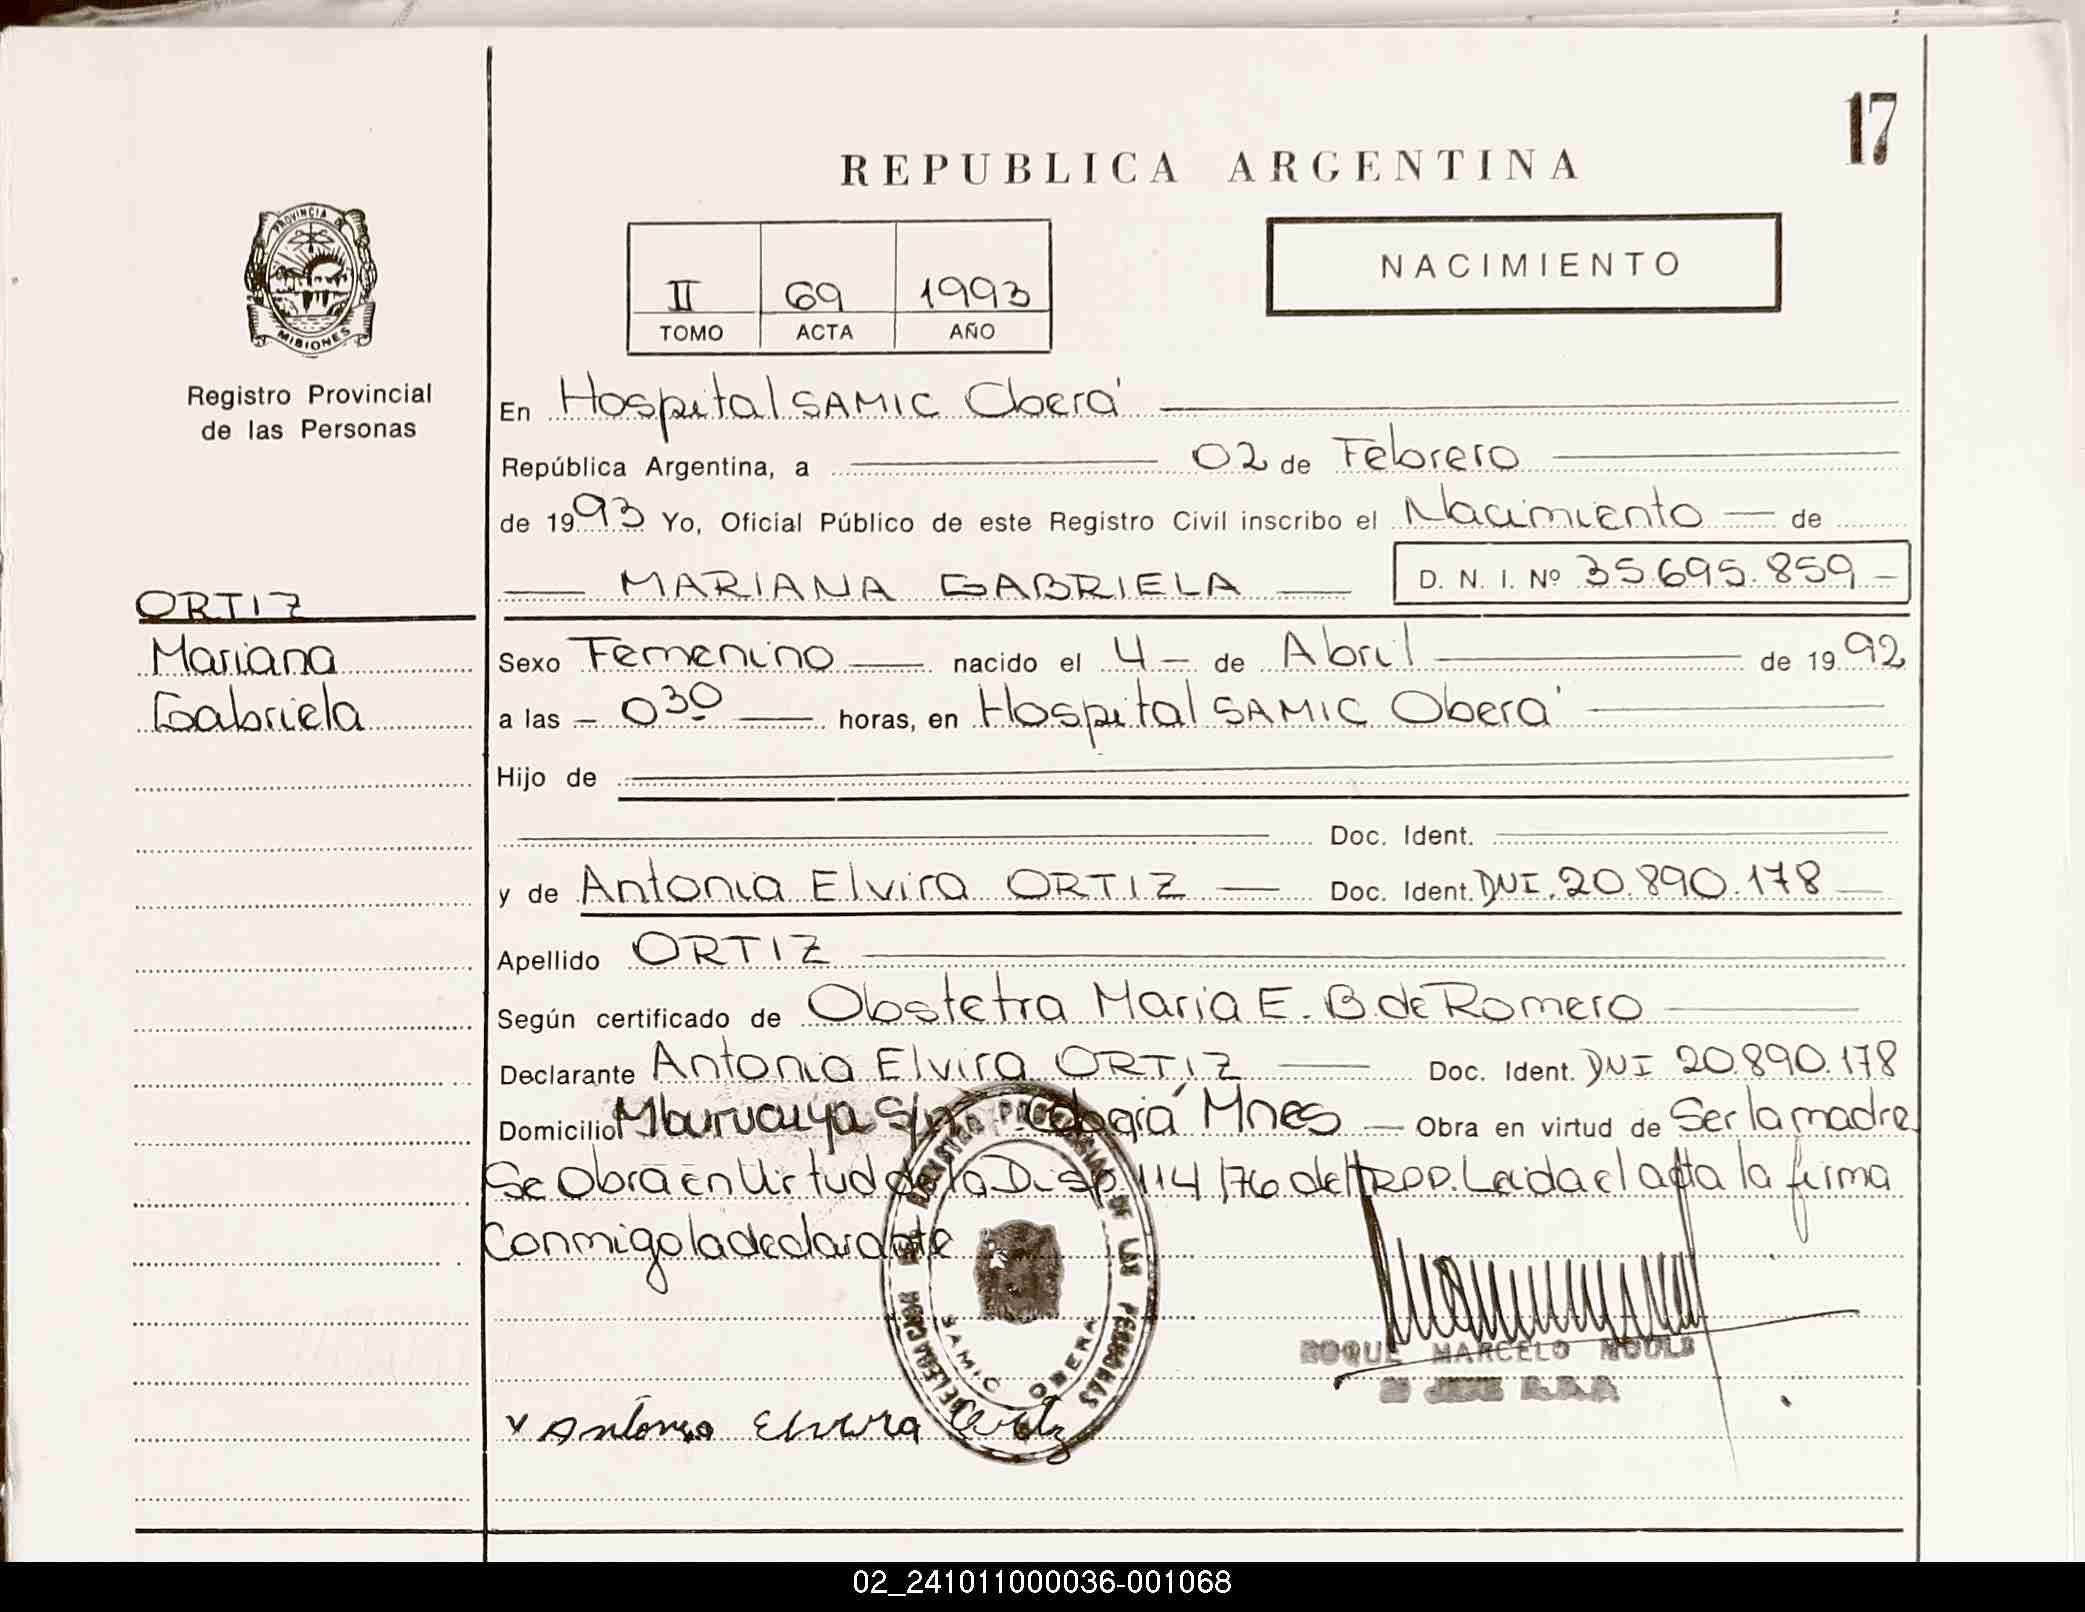 17
REPUBLICA ARGENTINA
PROVINCIA DE
MISIONES
II 69 1993
TOMO ACTA AÑO
NACIMIENTO
Registro Provincial
de las Personas
En Hospital SAMIC Oberá
República Argentina, a 02 de Febrero
de 1993 Yo, Oficial Público de este Registro Civil inscribo el Nacimiento de
MARIANA GABRIELA D. N. I. Nº 35.695.859
ORTIZ
Mariana
Gabriela
Sexo Femenino nacido el 4 de Abril de 1992
a las 0³⁰ horas, en Hospital SAMIC Oberá
Hijo de
Doc. Ident.
y de Antonia Elvira ORTIZ Doc. Ident. DNI. 20.890.178
Apellido ORTIZ
Según certificado de Obstetra Maria E. B. de Romero
Declarante Antonia Elvira ORTIZ Doc. Ident. DNI 20.890.178
Domicilio Mburucuya S/nº Mnes Obra en virtud de Ser la madre
Se Obra en Virtud de la Disp 114/76 del RPP. Leida el acta la firma
Conmigo la declarante
REGISTRO PROVINCIAL DE LAS PERSONAS
DELEGACION
SAMIC OBERA
ROQUE MARCELO
x Antonia Elvira Ortiz
02_241011000036-001068